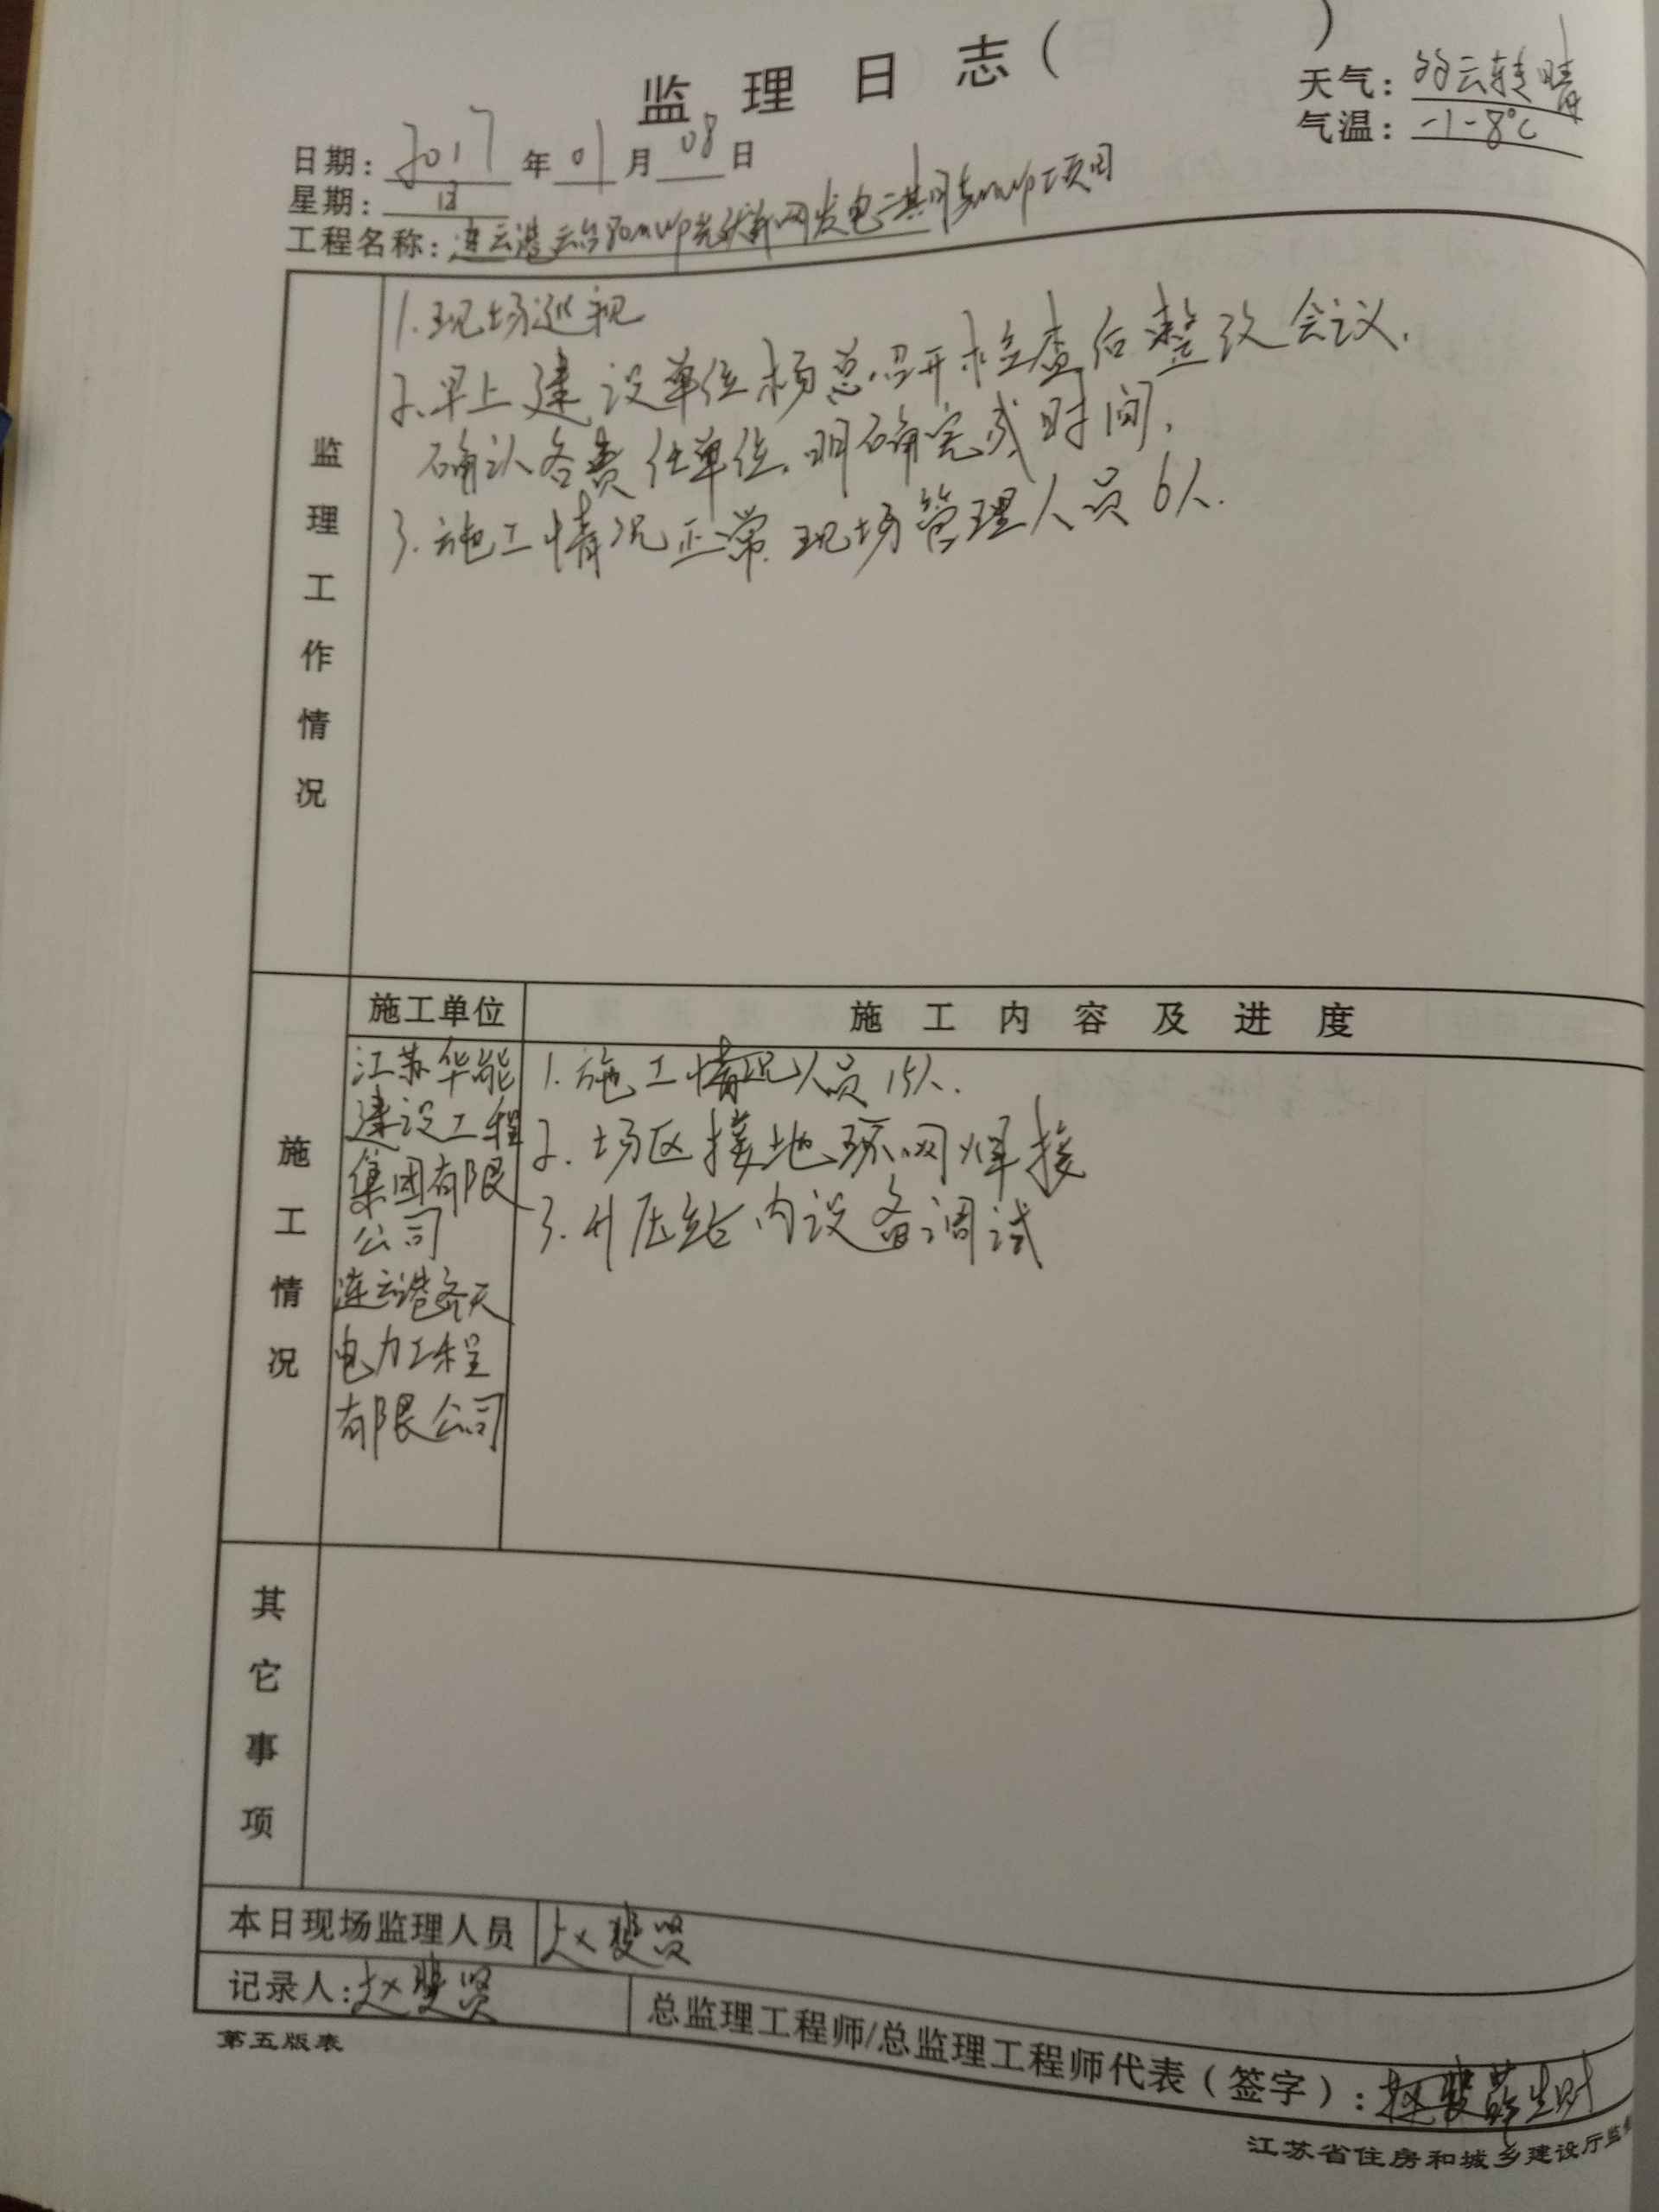 监理日志( )
天气: 多云转晴
气温: -1-8℃
日期: 2017 年 01 月 08 日
星期: 日
工程名称: 连云港云台80mwp光伏并网发电二期 项目
监理工作情况
1.现场巡视
2.早上建设单位杨总召开检查后整改会议.
确认各责任单位,明确完成时间.
3.施工情况正常.现场管理人员6人.
施工情况
施工单位
施工内容及进度
江苏华能
建设工程
集团有限
公司
连云港齐天
电力工程
有限公司
1.施工情况人员15人.
2.场区接地环网焊接
3.升压站内设备调试
其它事项
本日现场监理人员 赵斐贤
记录人: 赵斐贤
总监理工程师/总监理工程师代表(签字):
第五版表
江苏省住房和城乡建设厅监